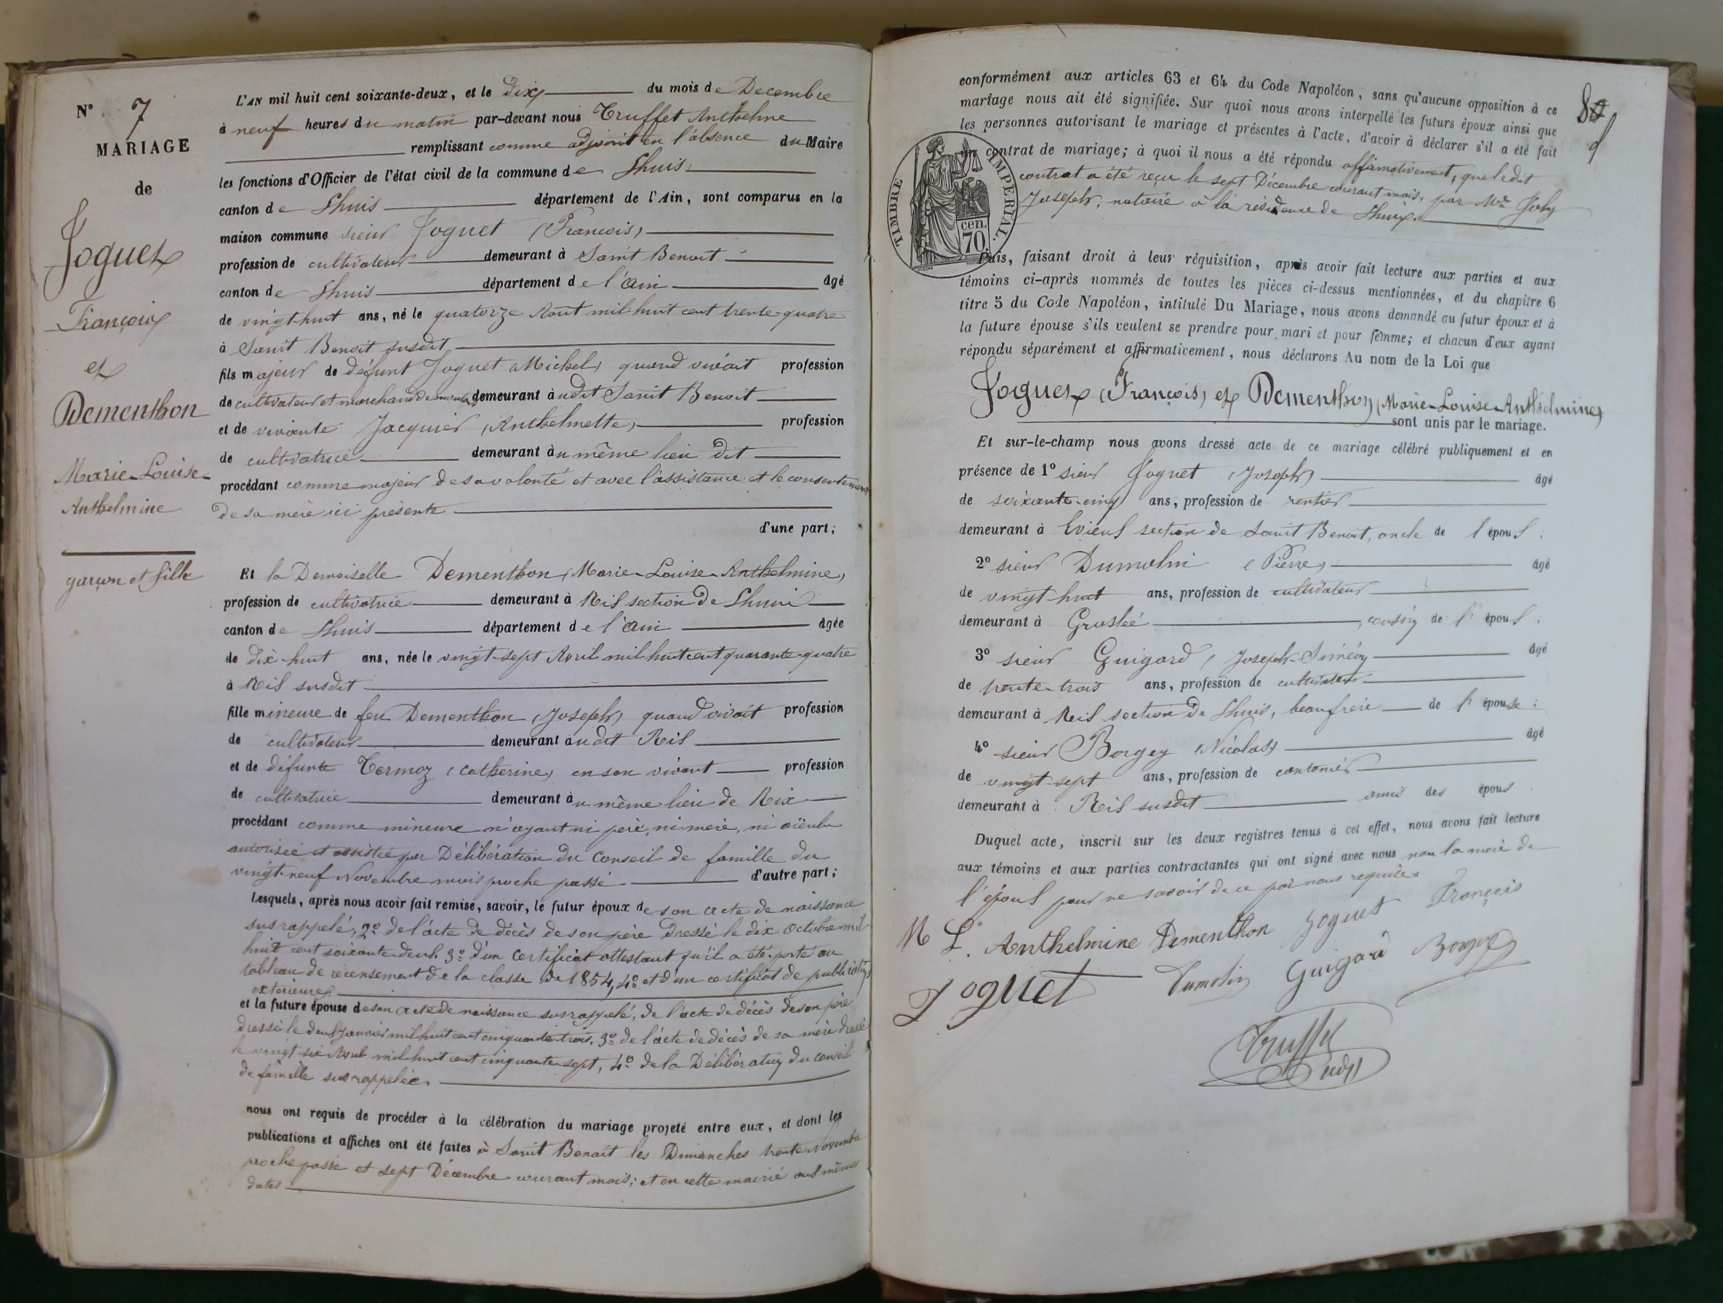 N° 7
MARIAGE
de
Joguet
François
et
Dementhon
Marie-Louise-
Anthelmine
garçon et fille
L'AN mil huit cent soixante-deux, et le dix du mois de Decembre
à neuf heures du matin par-devant nous Truffet Anthelme
remplissant comme adjoint en l'absence du Maire
les fonctions d'Officier de l'état civil de la commune de Lhuis
canton de Lhuis département de l'Ain, sont comparus en la
maison commune sieur Joguet (François)
profession de cultivateur demeurant à Saint Benoit
canton de Lhuis département de l'Ain âgé
de vingt huit ans, né le quatorze Aout mil huit cent trente quatre
à Saint Benoit susdit
fils majeur de défunt Joguet Michel, quand vivait profession
de cultivateur et marchand demeurant à udit Saint Benoit
et de vivante Jacquier (Anthelmette) profession
de cultivatrice demeurant au même lieu dit
procédant comme majeur de sa volonté et avec l'assistance et le consentement
de sa mère ici présente
d'une part;
Et la Demoiselle Dementhon (Marie-Louise-Anthelmine)
profession de cultivatrice demeurant à Rix section de Lhuis
canton de Lhuis département de l'Ain âgée
de dix-huit ans, née le vingt-sept Avril mil huit cent quarante-quatre
à Rix susdit
fille mineure de feu Dementhon (Joseph) quand vivait profession
de cultivateur demeurant audit Rix
et de défunte Termoz (Catherine) en son vivant profession
de cultivatrice demeurant au même lieu de Rix
procédant comme mineure n'ayant ni père, ni mère, ni aïeuls
autorisée et assistée par Délibération du Conseil de famille du
vingt-neuf Novembre mois proche passé d'autre part;
Lesquels, après nous avoir fait remise, savoir, le futur époux de son acte de naissance
susrappelé, 2° de l'acte de décès de son père dressé le dix octobre mil
huit cent soixante deux, 3° d'un certificat attestant qu'il a été porté au
tableau de recensement de la classe de 1854, 4° et d'un certificat de publication
extérieure
et la future épouse de son acte de naissance susrappelé, de l'acte de décès de son père
dressé le deux Janvier mil huit cent cinquante trois, 3° de l'acte de décès de sa mère dressé
le vingt-six Aout mil huit cent cinquante sept, 4° de la Délibération du conseil
de famille susrappelée.
nous ont requis de procéder à la célébration du mariage projeté entre eux, et dont les
publications et affiches ont été faites à Saint Benoit les Dimanches trente Novembre
proche passé et sept Décembre courant mois; et en cette mairie aux mêmes
dates
conformément aux articles 63 et 64 du Code Napoléon, sans qu'aucune opposition à ce
mariage nous ait été signifiée. Sur quoi nous avons interpellé les futurs époux ainsi que
les personnes autorisant le mariage et présentes à l'acte, d'avoir à déclarer s'il a été fait
un contrat de mariage; à quoi il nous a été répondu affirmativement, que ledit
contrat a été reçu le sept Décembre courant mois, par Me Joly
Joseph, notaire à la résidence de Lhuis.
TIMBRE IMPERIAL
70 cen.
Puis, faisant droit à leur réquisition, après avoir fait lecture aux parties et aux
témoins ci-après nommés de toutes les pièces ci-dessus mentionnées, et du chapitre 6
titre 5 du Code Napoléon, intitulé Du Mariage, nous avons demandé au futur époux et à
la future épouse s'ils veulent se prendre pour mari et pour femme; et chacun d'eux ayant
répondu séparément et affirmativement, nous déclarons Au nom de la Loi que
Joguet (François) et Dementhon (Marie-Louise-Anthelmine)
sont unis par le mariage.
Et sur-le-champ nous avons dressé acte de ce mariage célébré publiquement et en
présence de 1° sieur Joguet (Joseph) âgé
de soixante-cinq ans, profession de rentier
demeurant à section de Saint Benoit, oncle de l'époux.
2° sieur Dumolin (Pierre) âgé
de vingt-huit ans, profession de cultivateur
demeurant à Groslée cousin de l'époux.
3° sieur Guigard (Joseph-Siméon) âgé
de trente-trois ans, profession de cultivateur
demeurant à Rix section de Lhuis, beau frère de l'épouse;
4° sieur Borgey (Nicolas) âgé
de vingt-sept ans, profession de
demeurant à Rix susdit amis des époux.
Duquel acte, inscrit sur les deux registres tenus à cet effet, nous avons fait lecture
aux témoins et aux parties contractantes qui ont signé avec nous non la mère de
l'époux pour ne savoir de ce par nous requise.
M L. Anthelmine Dementhon Joguet François
Joguet Dumolin Guigard Borgey
Truffet
adjt